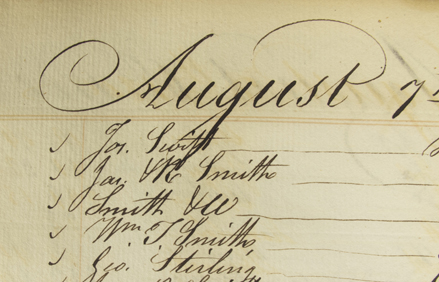 August 7
Jos. Swift
Jas. & R. Smith
Smith & Co
Wm. T. Smith
Geo. Stirling